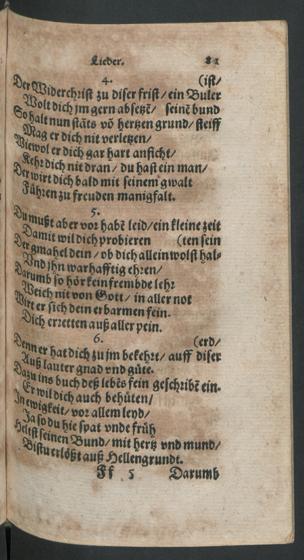 Lieder. 81
4. (ist/
Der Widerchrist zu diser frist/ ein Buler
Wolt dich jm gern absetzē/ seinē bund
So halt nun stäts vō hertzen grund/ steiff
Mag er dich nit verletzen/
Wiewol er dich gar hart anficht/
Kehr dich nit dran/ du hast ein man/
Der wirt dich bald mit seinem gwalt
Führen zu freuden manigfalt.
5.
Du mußt aber vor habē leid/ ein kleine zeit
Damit wil dich probieren (ten sein
Der gmahel dein/ ob dich allein wolst hal-
Vnd jhn warhafftig ehren/
Darumb so hör kein frembde lehr
Weich nit von Gott/ in aller not
Wirt er sich dein erbarmen fein.
Dich erretten auß aller pein.
6. (erd/
Denn er hat dich zu jm bekehrt/ auff diser
Auß lauter gnad vnd güte.
Dazu ins buch deß lebēs fein geschribē ein.
Er wil dich auch behüten/
In ewigkeit/ vor allem leyd/
Ja so du hie spat vnde früh
Hältst seinen Bund/ mit hertz vnd mund/
Bistu erlößt auß Hellengrundt.
Ff 5 Darumb